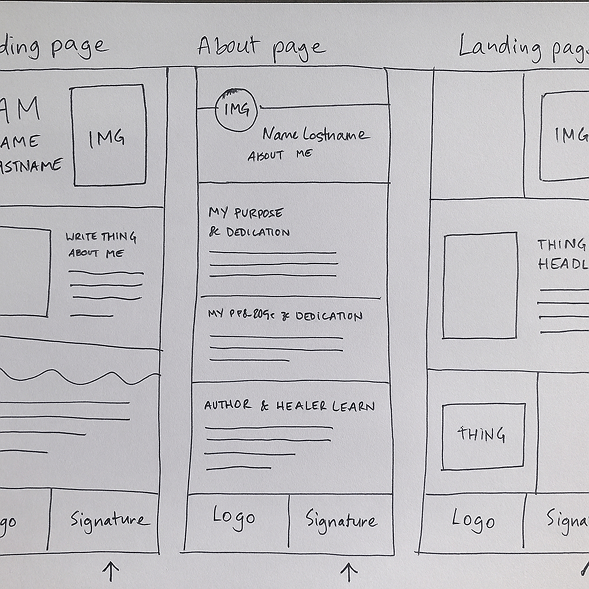 ding page
AM
AME
ASTNAME
IMG
WRITE THING
ABOUT ME
go
Signature
About page
IMG
Name Lostname
ABOUT ME
MY PURPOSE
& DEDICATION
MY & DEDICATION
AUTHOR & HEALER LEARN
Logo
Signature
Landing pag
IMG
THING
HEADL
THING
Logo
Signa